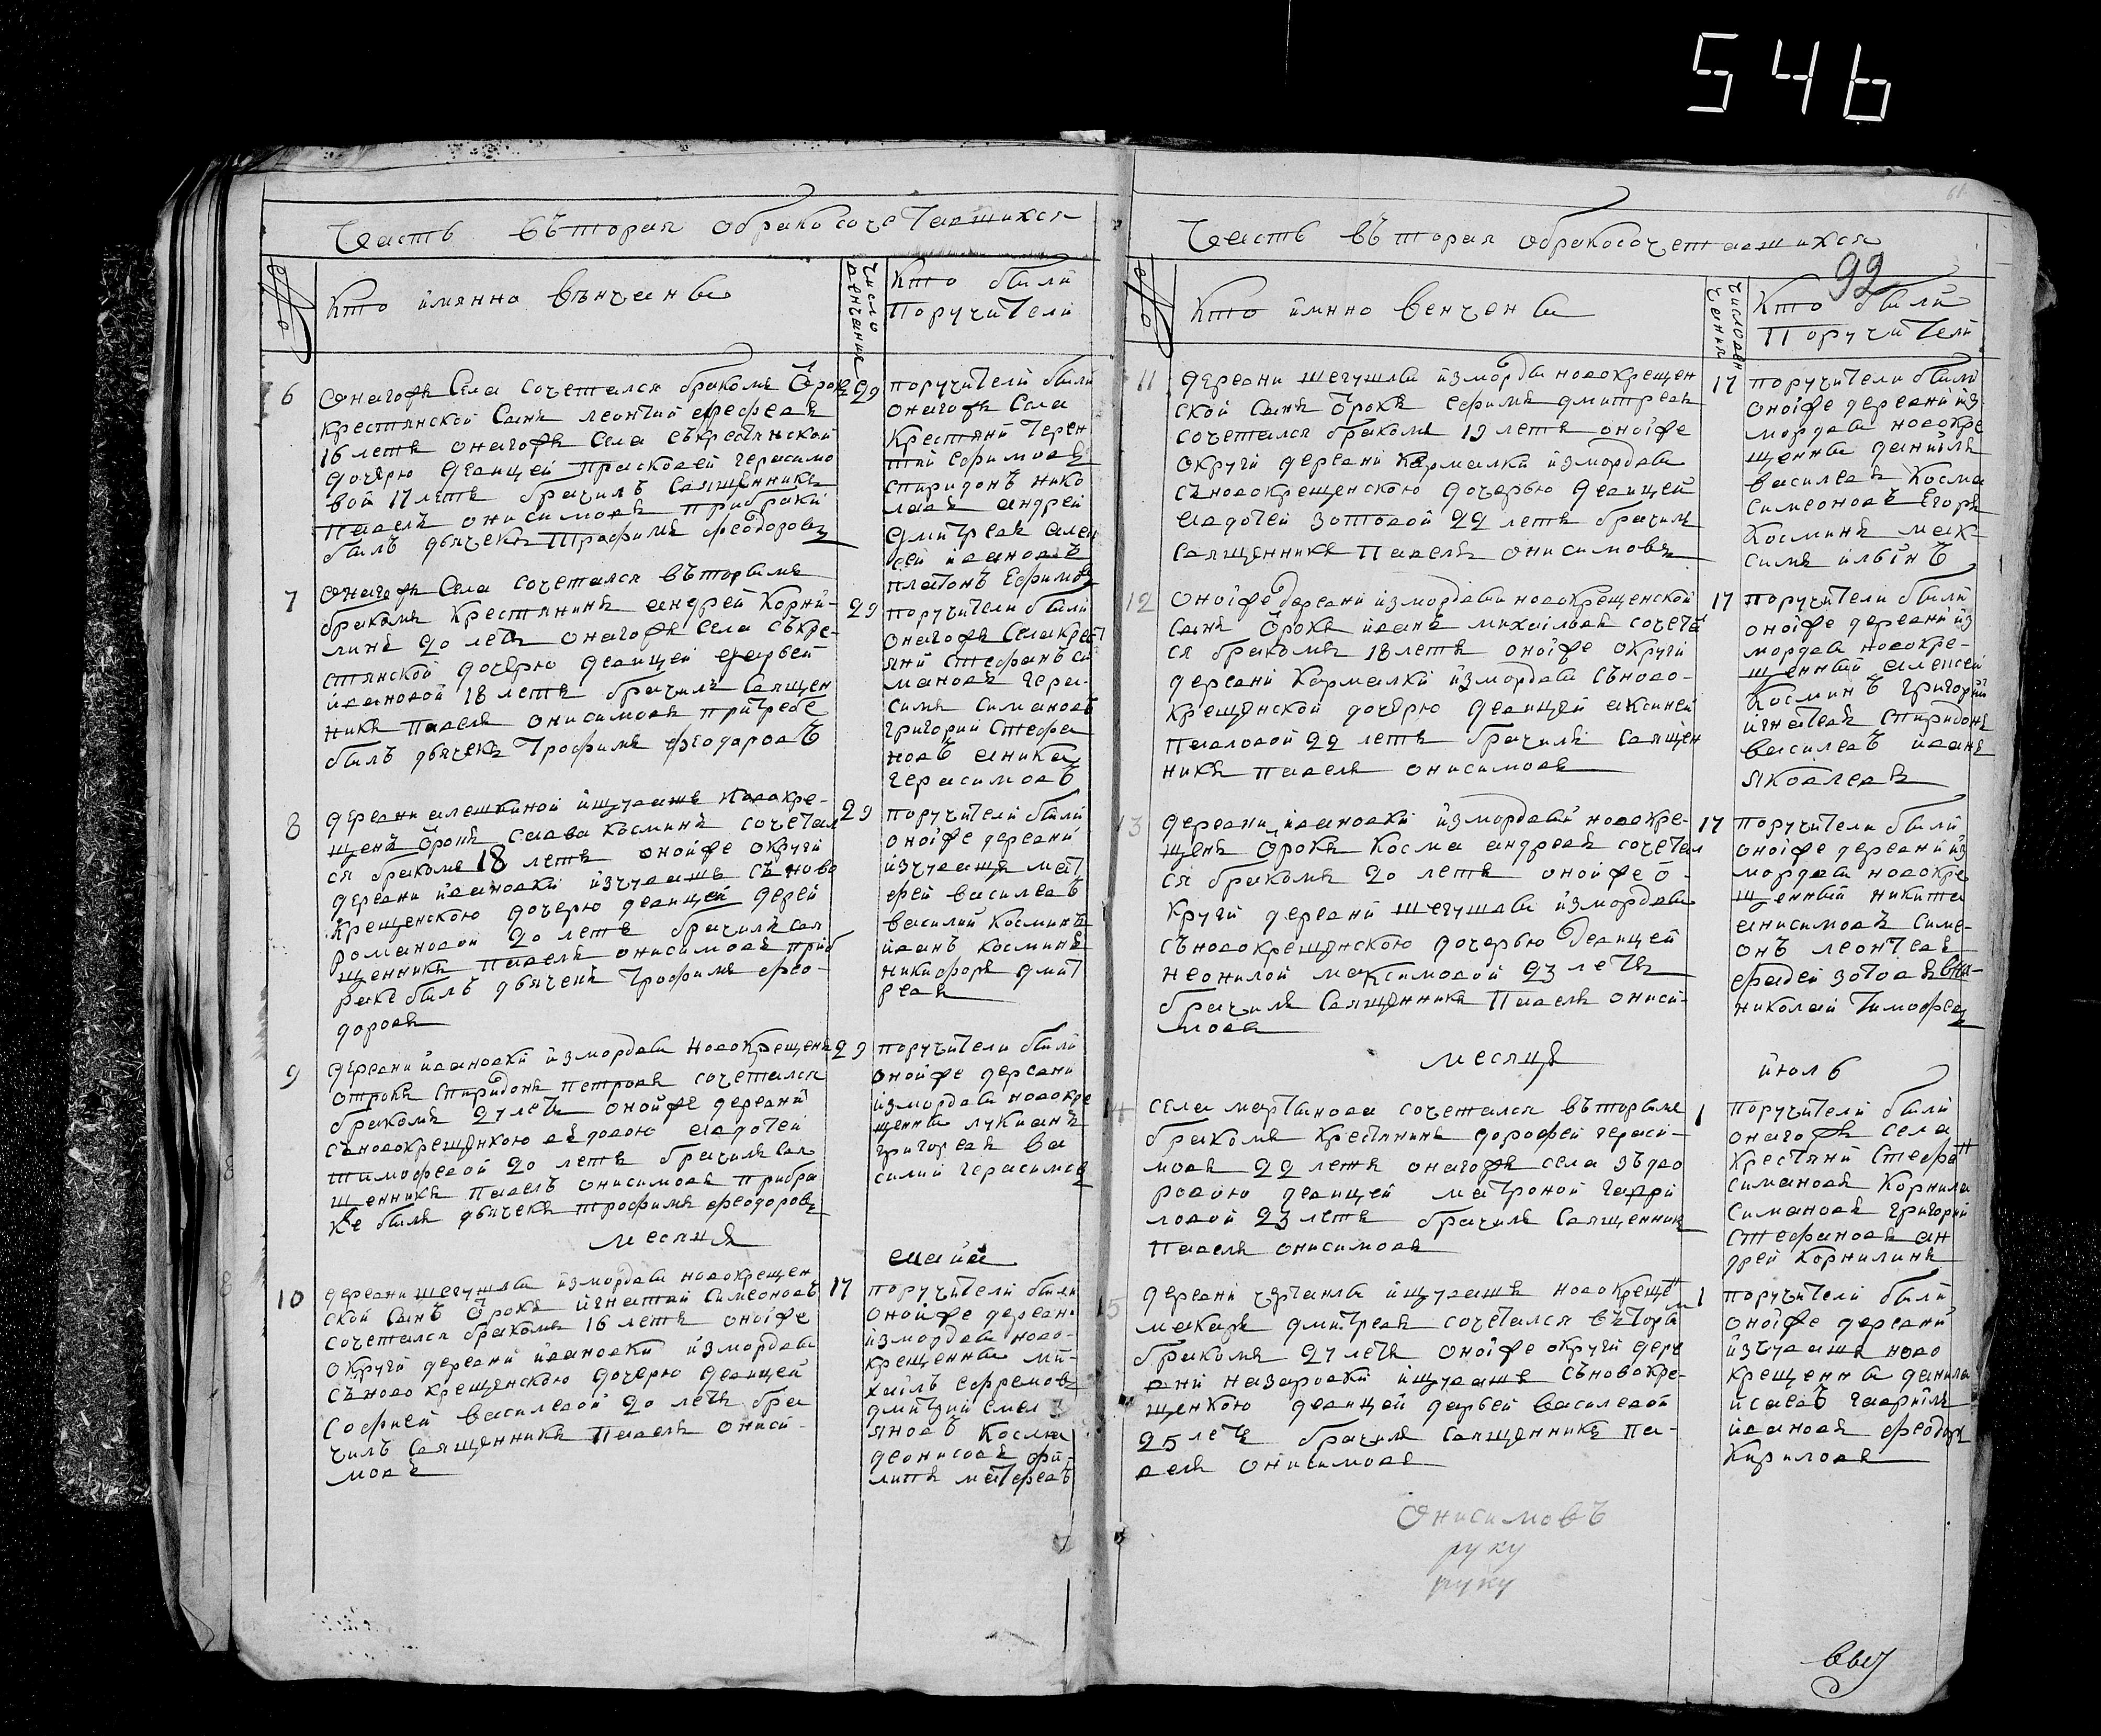 546
Часть въторая обракосочетавшихся
№
Кто имянно вѣнчаны
Число венчания
Кто были
Поручители
6
Онагожъ Села сочетался бракомъ Отрокъ
крестьянской Сынъ леонтий фефеевъ
16 летъ онагожъ Села съкрестьянской
дочерю девицей Прасковей герасимо
вой 17 летъ брачилъ Священникъ
Павелъ онисимовъ прибраки
былъ дьячекъ Трофимъ феодоровъ
29
поручители были
онагожъ Села
Крестьяни Терен
тий Ефимовъ
спиридонъ нико
лавъ андрей
дмитревъ алек
сей ивановъ
платонъ Ефимовъ
7
Онагожъ Села сочетался въторымъ
бракомъ Крестянинъ андрей Корни-
линъ 20 летъ онагожъ Села съкре-
стянской дочерю девицей дарьей
ивановой 18 летъ брачилъ Священ
никъ Павелъ онисимовъ притребе
былъ дьячекъ Трофимъ феодоровъ
29
поручители были
онагожъ Села крест
яни Стефанъ си
мановъ гера-
симъ симановъ
григорий Стефа
новъ аника
герасимовъ
8
деревни алешкиной ищувашъ новокре-
щенъ Отрокъ савва Косминъ сочетал
ся бракомъ 18 летъ онойже округи
деревни ивановки изчувашъ съ ново
крещенскою дочерю девицей дарей
романовой 20 летъ брачилъ свя
щенникъ Павелъ онисимовъ приб
раке былъ дьячекъ Трофимъ фео-
доровъ
29
поручители были
онойже деревни
изчувашъ мат
фей василевъ
василий Косминъ
иванъ Косминъ
никифоръ дмит
ревъ
9
деревни ивановки измордвы новокрещенъ
отрокъ спиридонъ петровъ сочетался
бракомъ 27 летъ онойже деревни
съновокрещенкою вдовою авдотей
тимофевой 20 летъ брачилъ свя
щенникъ Павелъ онисимовъ прибра
ке былъ дьячекъ трофимъ феодоровъ
29
поручители были
онойже деревни
измордвы новокре
щенны лукианъ
григоревъ ва
силий герасимов
месяца
маиа
10
деревни шегушлы измордвы новокрещен
ской Сынъ Отрокъ игнатий Симеоновъ
сочетался бракомъ 16 летъ онойже
округи деревни ивановки измордвы
съново крещенскою дочерю девицей
Софией василевой 20 летъ бра
чилъ священникъ Павелъ ониси-
мовъ
17
поручители были
онойже деревни
измордвы ново-
крещенны ми-
хайлъ ефремовъ
дмитрий емел
яновъ Косма
деонисовъ фи-
липъ матфевъ
Часть въторая обракосочетавшихся
92
№
Кто имнно венчены
Число вен
чения
Кто были
Поручители
11
деревни шегушлы измордвы новокрещен
ской Сынъ Отрокъ ефимъ дмитревъ
сочетался бракомъ 19 летъ онойже
округи деревни Кармалки измордвы
съновокрещенскою дочерью девицей
авдотей зотовой 22 летъ брачилъ
Священникъ Павелъ онисимовъ
17
поручители были
онойже деревни из
мордвы новокре
щенны данийлъ
василевъ Косма
Симеоновъ Егоръ
Косминъ мак-
симъ ильинъ
12
Онойже деревни измордвы новокрещенской
Сынъ Отрокъ иванъ михаиловъ сочетал
ся бракомъ 18 летъ онойже округи
деревни Кармалки измордвы съново-
крещенской дочерю девицей аксиней
Павловой 22 летъ брачилъ Священ
никъ Павелъ онисимовъ
17
поручители были
онойже деревни из
мордвы новокре-
щенный алексей
Косминъ григорий
игнатевъ спиридонъ
василевъ иванъ
Яковлевъ
13
деревни ивановки измордвы новокре-
щенъ Отрокъ Косма андревъ сочетал
ся бракомъ 20 летъ онойже о-
круги деревни шегушлы измордвы
съновокрещенскою дочерью девицей
неонилой максимовой 23 летъ
брачилъ Священникъ Павелъ ониси-
мовъ
17
поручители были
онойже деревни из
мордвы новокре
щенный никита
анисимовъ симе-
онъ леонтевъ
фадей зотовъ
николай Тимофеевъ
месяца
июль
14
села мартынова сочетался въторымъ
бракомъ крестянинъ дорофей гераси-
мовъ 22 летъ онагожъ села здво
ровою девицей матроной гаври
ловой 23 летъ брачилъ Священникъ
Павелъ онисимовъ
1
поручители были
онагожъ села
Крестяни Стефан
симановъ Корнила
Симановъ григорий
Стефановъ ан
дрей Корнилинъ
15
деревни чуртанлы ищувашъ новокрещен
макаръ дмитревъ сочетался въторым
бракомъ 27 летъ онойже округи дере
вни назаровки ищувашъ съновокре-
щенкою девицей дарьей василевой
25 летъ брачилъ священникъ Па-
велъ онисимовъ
1
поручители были
онойже деревни
изчувашъ ново
крещенны данила
исаевъ гаврилъ
ивановъ феодоръ
Кириловъ
Онисимовъ
руку
руку